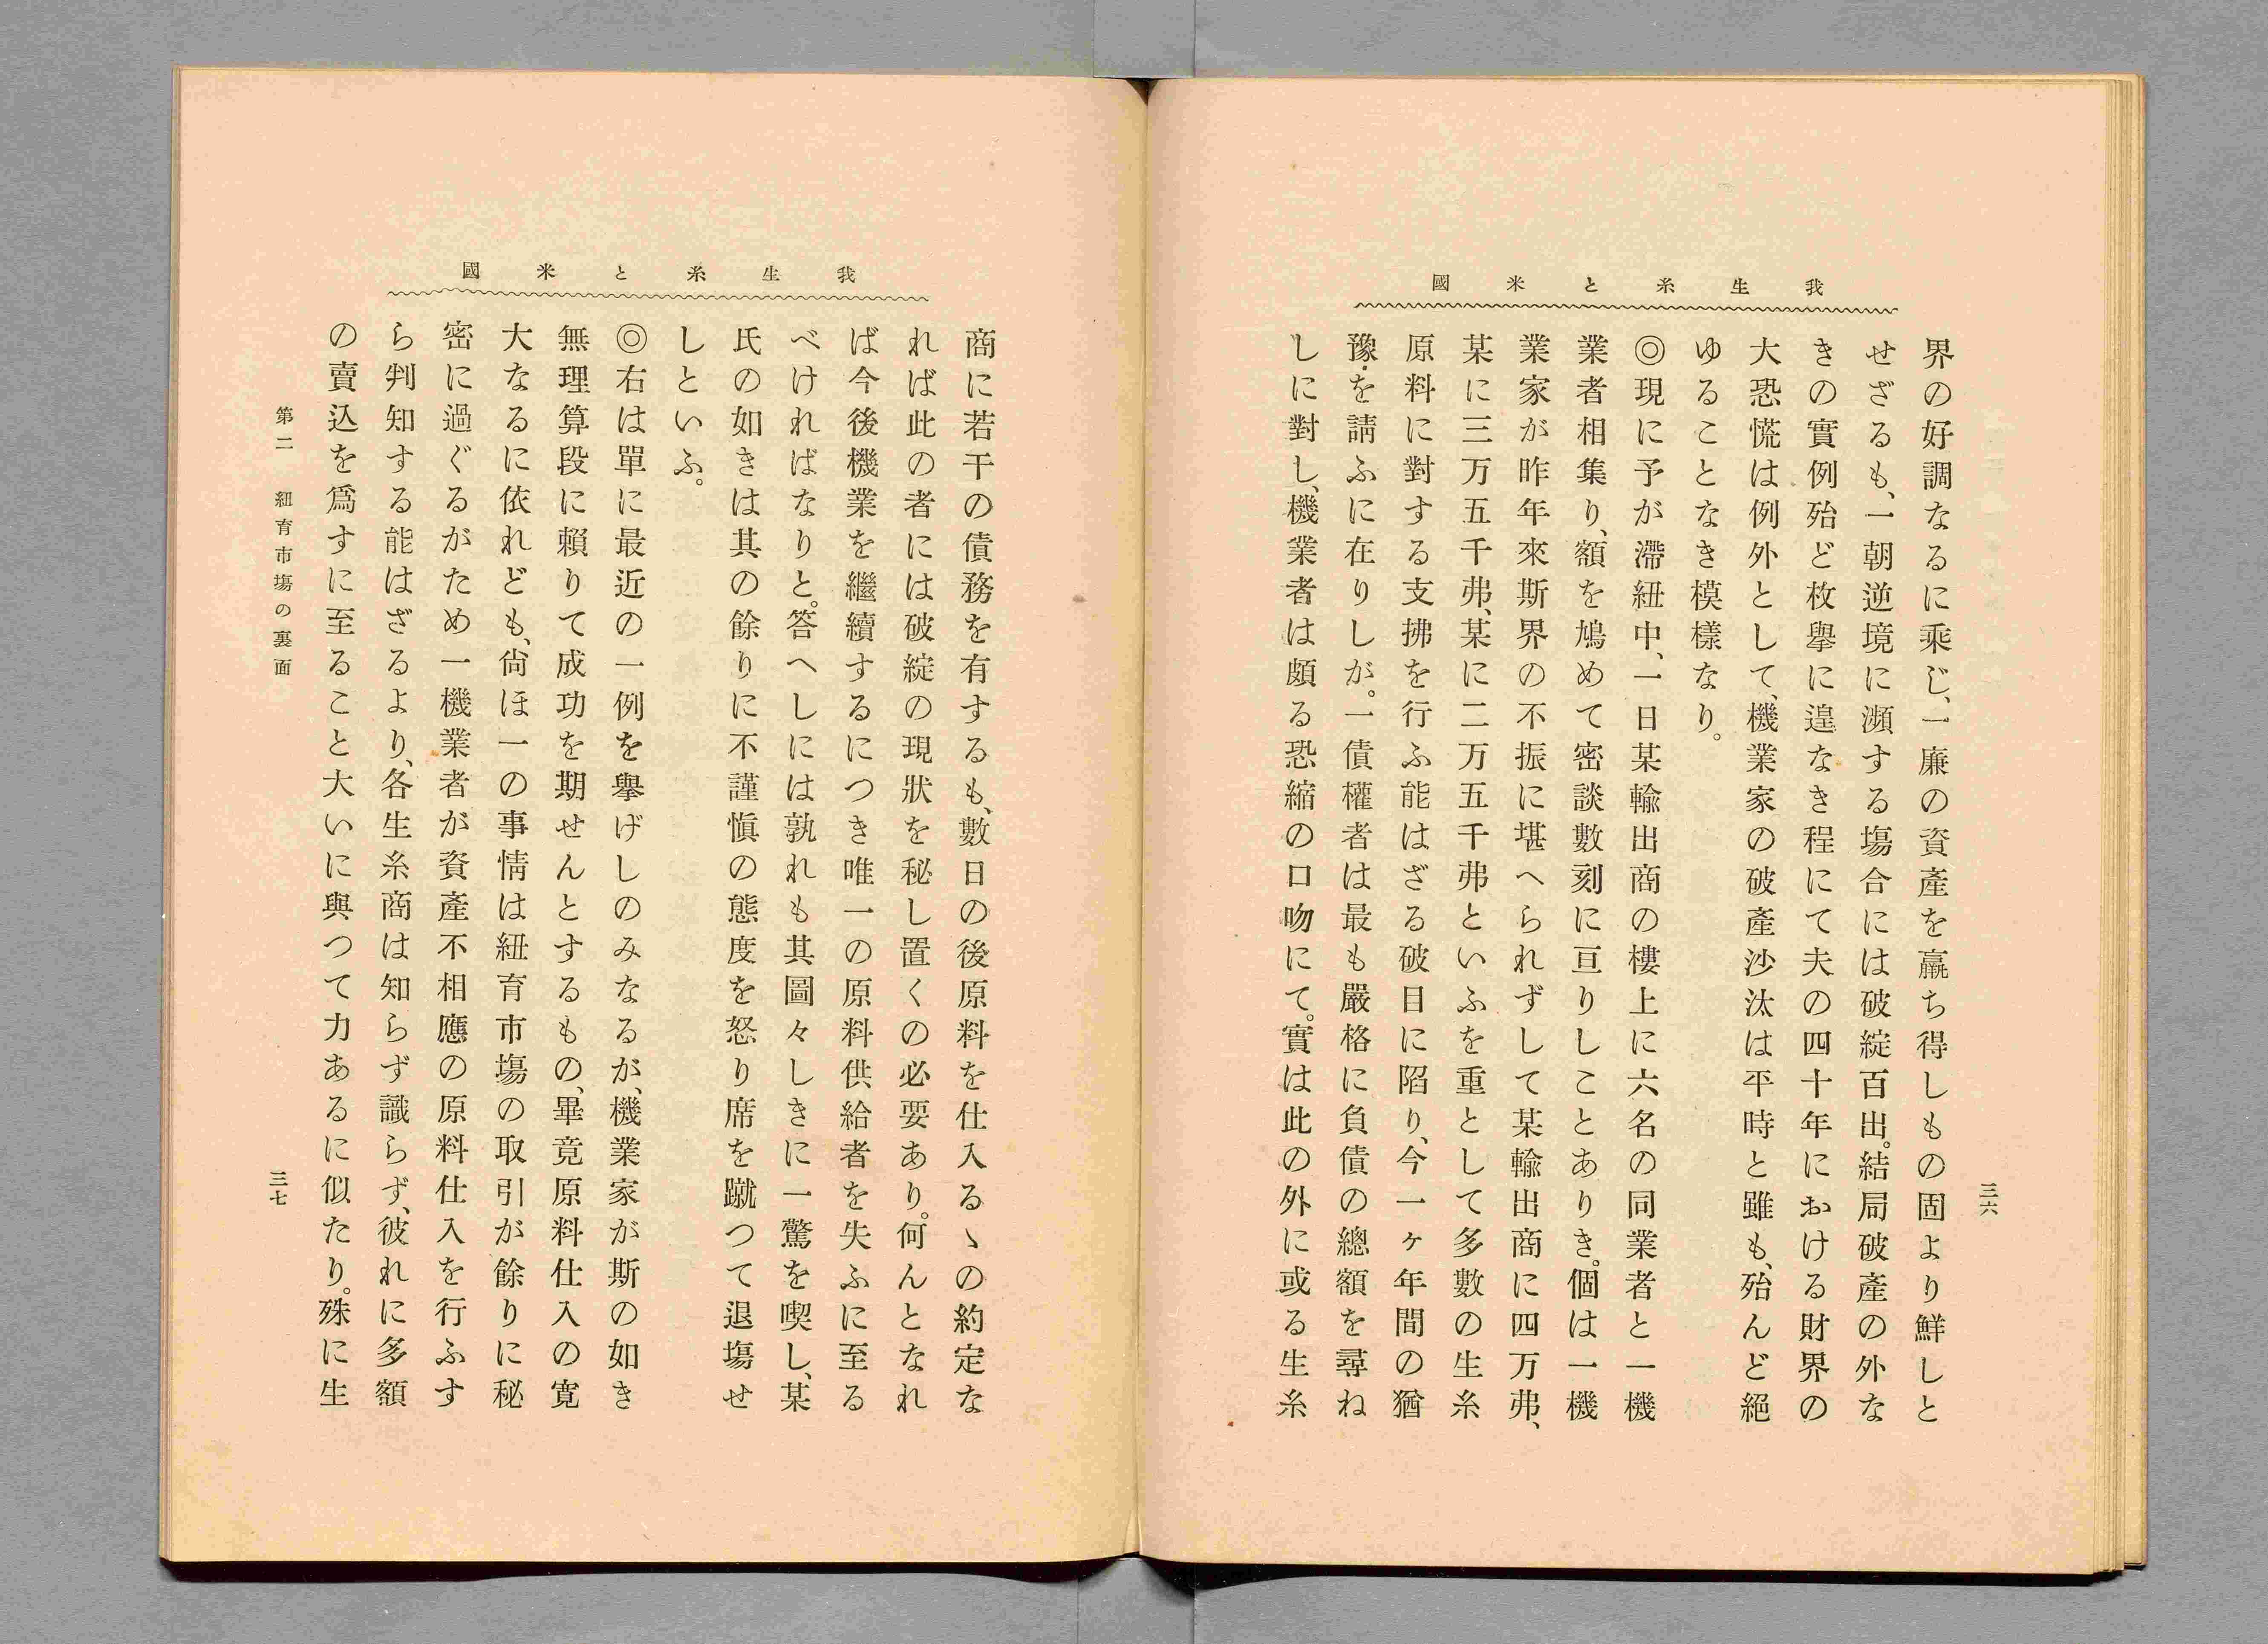 我生糸と米國
三六
界の好調なるに乘じ、一廉の資產を贏ち得しもの固より鮮しと
せざるも、一朝逆境に瀕する塲合には破綻百出。結局破產の外な
きの實例殆ど枚擧に遑なき程にて夫の四十年における財界の
大恐慌は例外として、機業家の破產沙汰は平時と雖も、殆んど絕
ゆることなき模樣なり。
◎現に予が滯紐中、一日某輸出商の樓上に六名の同業者と一機
業者相集り、額を鳩めて密談數刻に亘りしことありき。個は一機
業家が昨年來斯界の不振に堪へられずして某輸出商に四万弗、
某に三万五千弗、某に二万五千弗といふを重として多數の生糸
原料に對する支拂を行ふ能はざる破目に陷り、今一ヶ年間の猶
豫を請ふに在りしが。一債權者は最も嚴格に負債の總額を尋ね
しに對し、機業者は頗る恐縮の口吻にて。實は此の外に或る生糸
我生糸と米國
商に若干の債務を有するも、數日の後原料を仕入るゝの約定な
れば此の者には破綻の現狀を秘し置くの必要あり。何んとなれ
ば今後機業を繼續するにつき唯一の原料供給者を失ふに至る
べければなりと。答へしには孰れも其圖々しきに一驚を喫し、某
氏の如きは其の餘りに不謹愼の態度を怒り席を蹴つて退塲せ
しといふ。
◎右は單に最近の一例を擧げしのみなるが、機業家が斯の如き
無理算段に賴りて成功を期せんとするもの、畢竟原料仕入の寬
大なるに依れども、尙ほ一の事情は紐育市塲の取引が餘りに秘
密に過ぐるがため一機業者が資產不相應の原料仕入を行ふす
ら判知する能はざるより、各生糸商は知らず識らず、彼れに多額
の賣込を爲すに至ること大いに與つて力あるに似たり。殊に生
第二 紐育市塲の裏面
三七